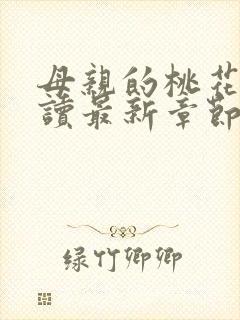 母親的桃花
讀最新章節
绿竹卿卿